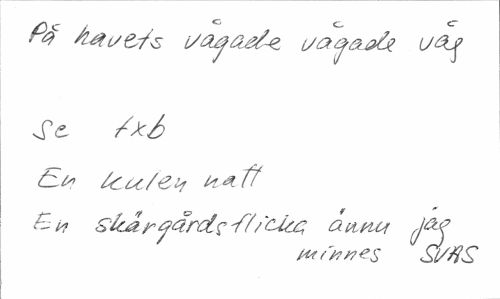 På havets vågade vågade våg
Se txb
En kulen natt
En skärgårdsflicka ännu jag
minnes SVAS